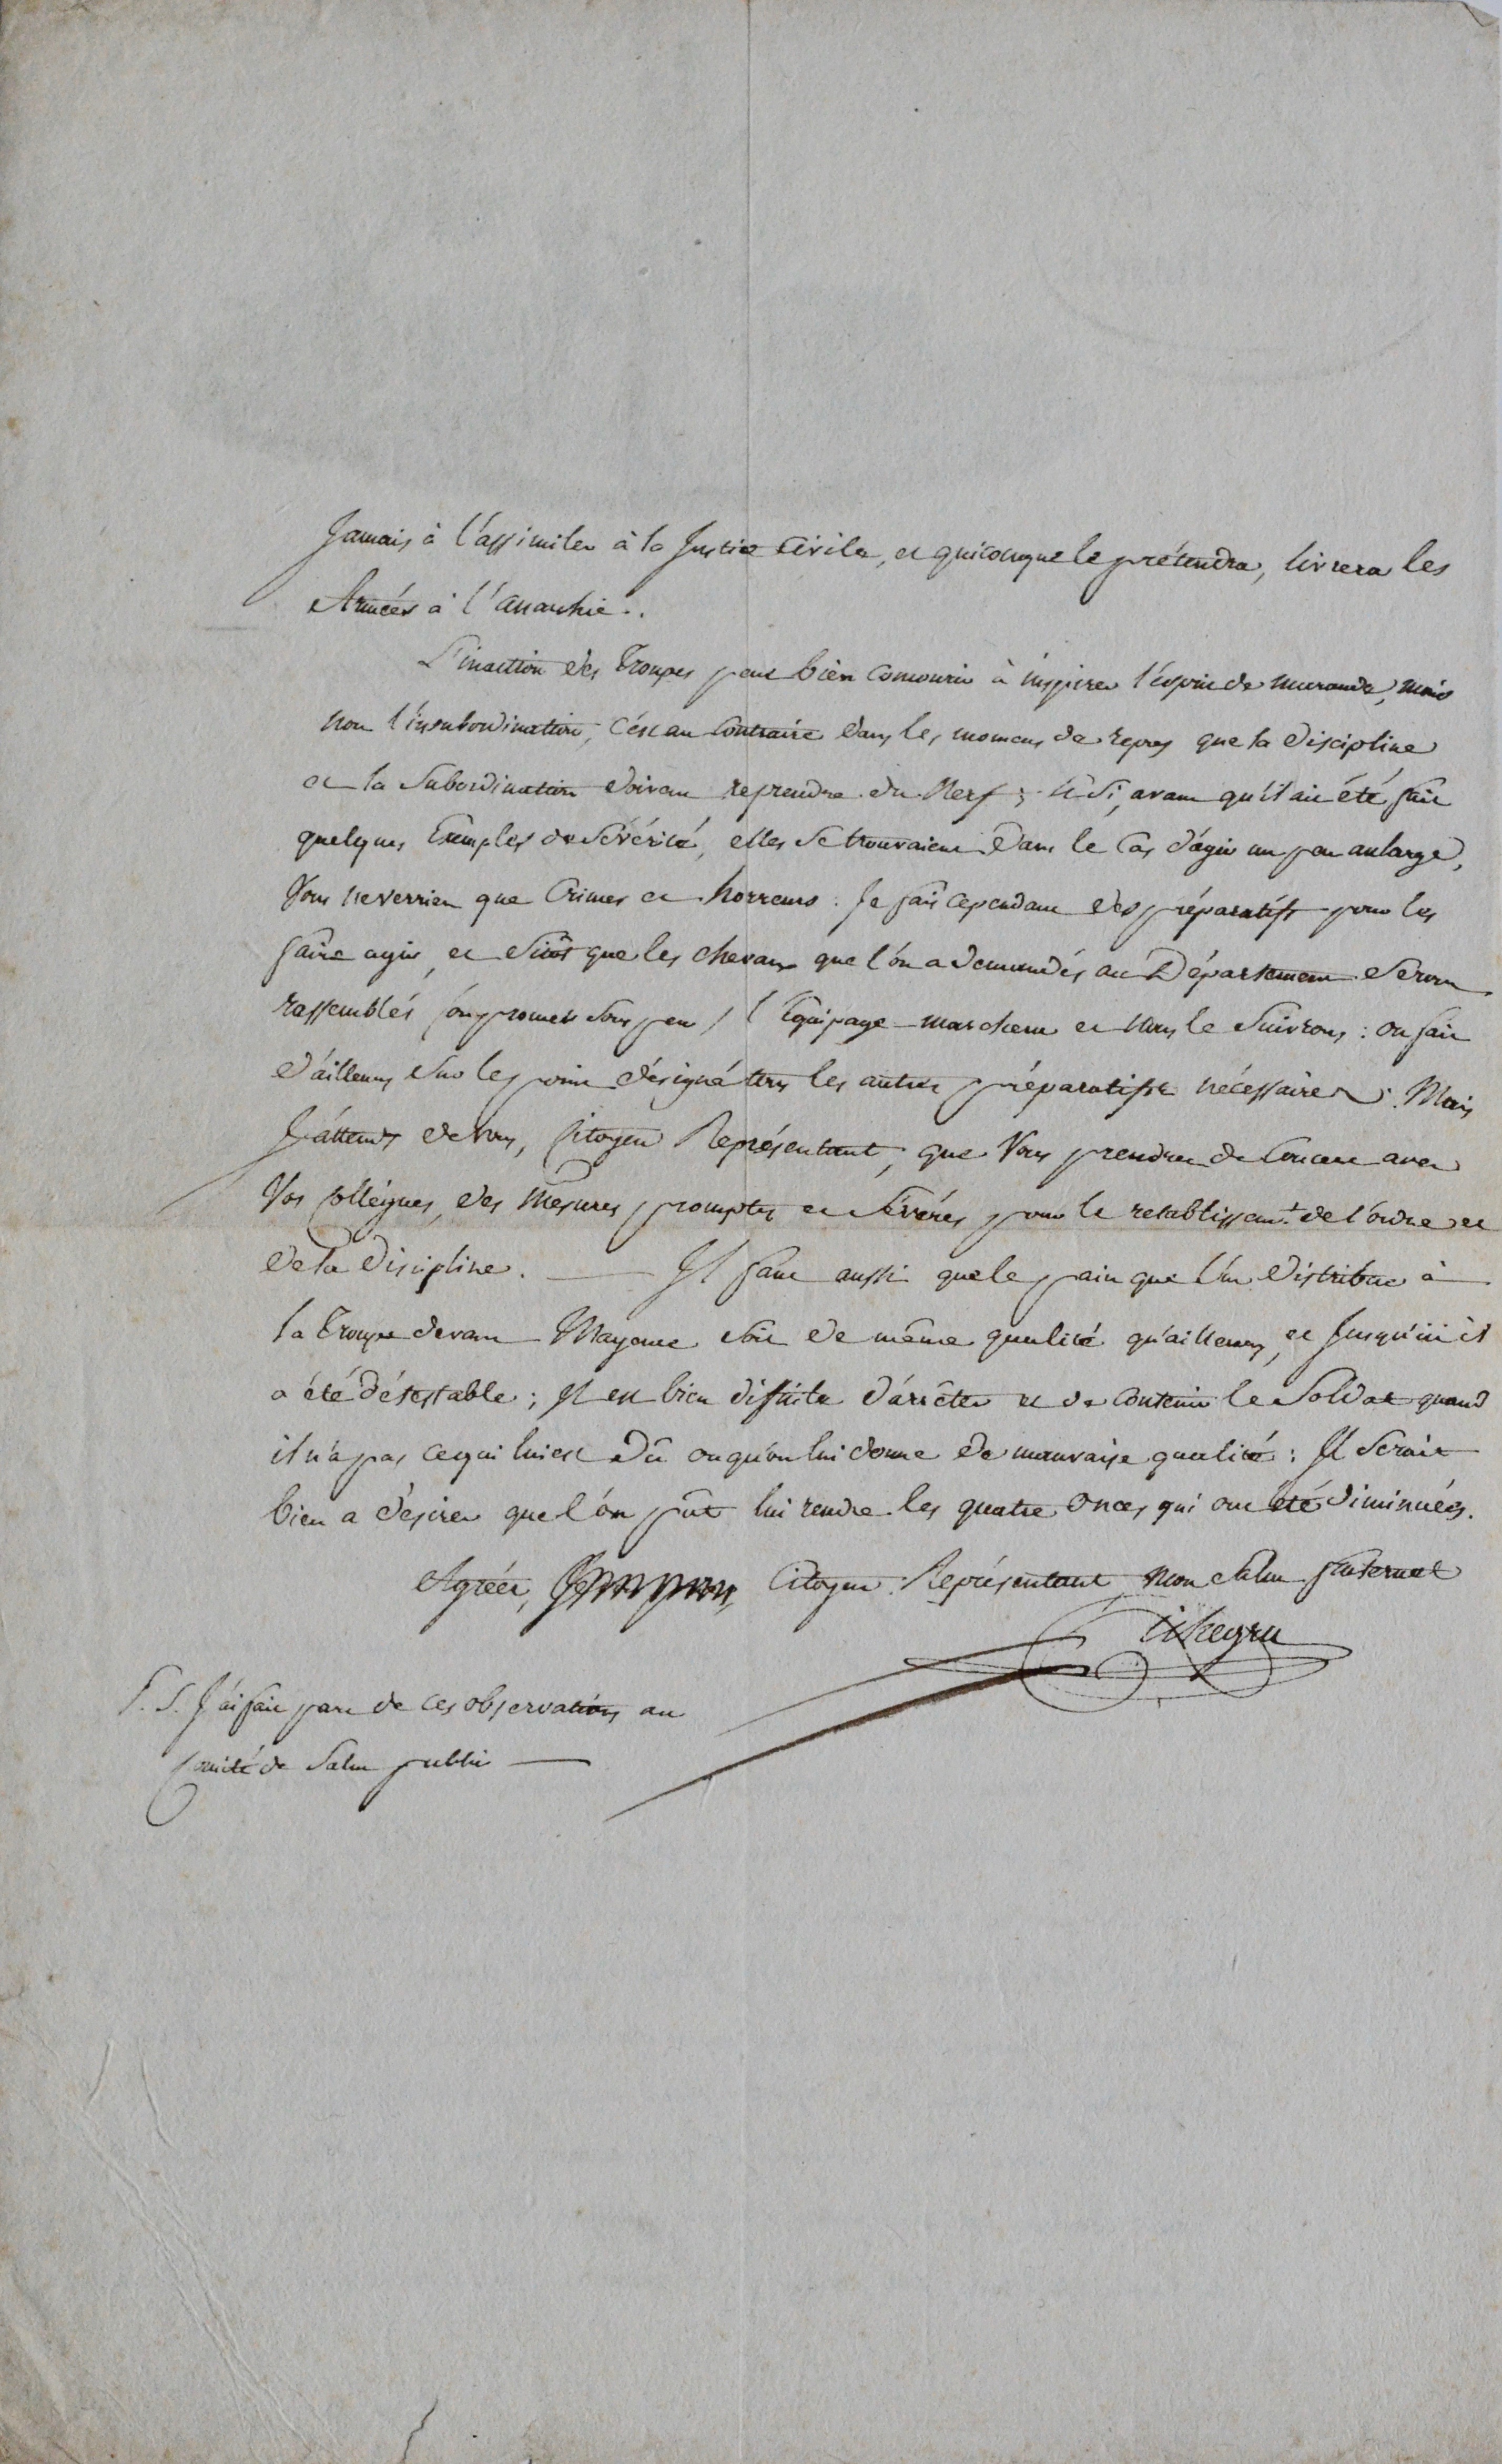 Jamais à l'assimiler à la Justice Civile, et quiconque le prétendra, livrera les
Armées à l'anarchie..
L'inaction des Troupes peut bien concourir à inspirer l'ésprit de maraude, mais
non l'insubordination; c'ést au Contraire dans les momens de repos que la discipline
et la Subordination doivent reprendre du Nerf; et Si, avant qu'il ait été fait
quelques Exemples de Sévérité, elles Se trouvaient dans le Cas d'agir un peu au large,
Vous ne verriez que Crimes et horreurs: Je fais cependant des préparatifs pour les
faire agir, et Sitôt que les chevaux que l'on a demandés au Département Seront
rassemblés (on promet sous peu) l'Equipage marchera et Nous le Suivrons: on fait
d'ailleurs Sur le point désigné tous les autres préparatifs nécessaires. Mais
J'attends de Vous, Citoyen Représentant, que Vous prendrez de Concert avec
Vos Collègues, des Mesures promptes et Sévères pour le retablissemt. de l'ordre et
de la Discipline. — Il faut aussi que le pain que l'on distribue à
la Troupe devant Mayence Soit de même qualité qu'ailleurs, et Jusqu'ici il
a été détestable; Il est bien difficile d'arrêter et de Contenir le Soldat quand
il n'a pas ce qui lui est Dû ou qu'on lui donne de mauvaise qualité: Il Serait
bien a désirer que l'on pût lui rendre les quatre Onces qui ont été diminuées.
Agréez, Citoyen Représentant, mon Salut fraternel
Pichegru
P.S. J'ai fait part de ces observations au
Comité de Salut public —